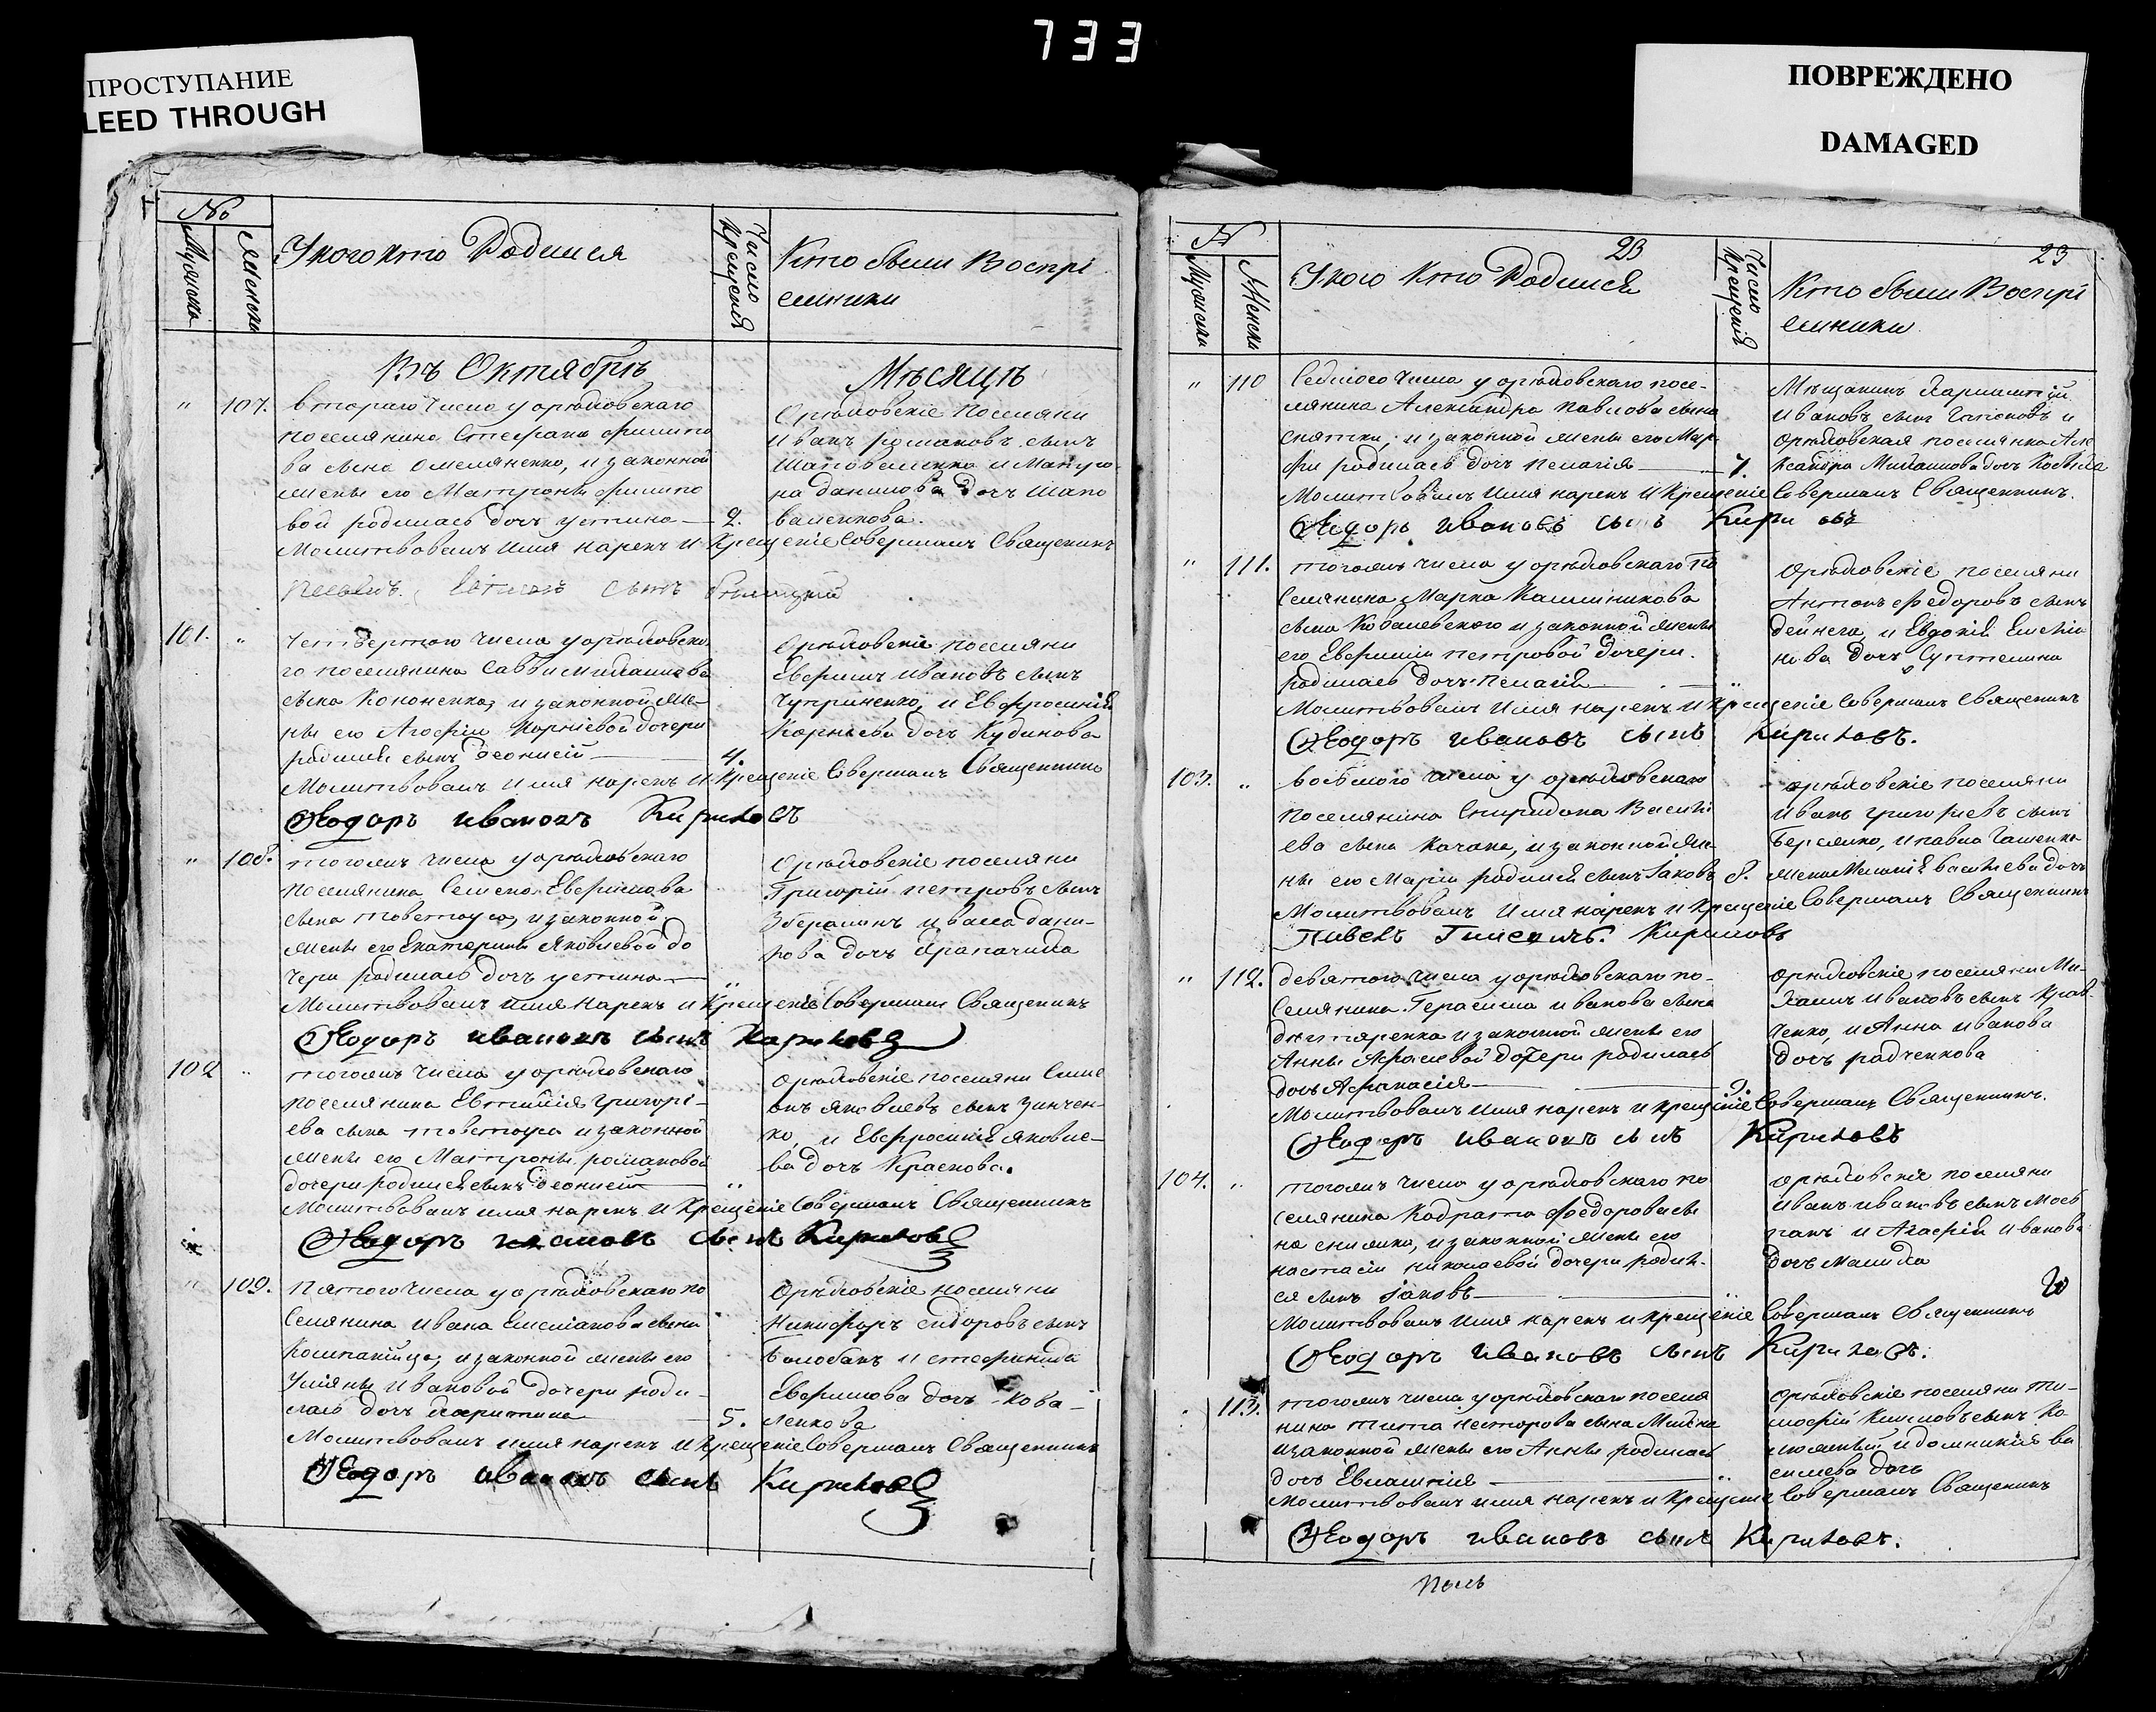 733
ПРОСТУПАНИЕ
LEED THROUGH
ПОВРЕЖДЕНО
DAMAGED
№
Мужеска
Женска
У кого кто Родился
Число Крещенія
Кто были Воспрі
емники
Въ Октябрѣ
Мѣсяцѣ
" 107. втораго числа у орѣховскаго
поселянина Стефана Филипо
ва сына Омеляненко, и законной
жены его Матроны Филипо
вой родилась дочь устина — 2.
Орѣховскіе поселяни
Иванъ романовъ сынъ
Шаповаленко и
на данилова дочь Шапо
валенкова.
Молитвовалъ имя нарекъ и Крещеніе Совершалъ Священникъ
сынъ
101. " Четвертого числа у орѣховска
го поселянина Саввы Михайлова
сына Кононенка, и законной же-
ны его Агафіи Корніевой дочери
родился сынъ Деонисій — 4.
Орѣховскіе поселяни
Ефримъ Ивановъ сынъ
Чуприненко, и Евфросинія
Корніева дочь Кудинова
Молитвовалъ имя нарекъ и Крещеніе Совершалъ Священникъ
Ѳеодоръ Ивановъ Кириловъ
" 108. тогожъ числа у орѣховскаго
поселянина Семена Ефримова
сына товстоуса, и законной
жены его Екатерины Яковлевой до
чери родилась дочь устина — "
Орѣховскіе поселяни
Григорій петровъ сынъ
и васса дани-
лова дочь
Молитвовалъ имя нарекъ и Крещеніе Совершалъ Священникъ
Ѳеодоръ Ивановъ сынъ Кириловъ
102 " тогожъ числа у орѣховскаго
поселянина Евтихія григорі-
ева сына товстоуса и законной
жены его Матроны романовой
дочери родился сынъ Деонисій — "
Орѣховскіе поселяни Симе
онъ яковлевъ сынъ Зинчен-
ко, и Евфросинія яковле-
ва дочь Краснова.
Молитвовалъ имя нарекъ и Крещеніе Совершалъ Священникъ
Ѳеодоръ Ивановъ сынъ Кириловъ
" 109. Пятого числа у орѣховскаго по
селянина Ивана Емелианова сына
Компанійца, и законной жены его
Уліяны Ивановой дочери роди-
лась дочь Харитина — 5.
Орѣховскіе поселяни
Никифоръ Сидоровъ сынъ
Балобанъ и стефанида
Ефримова дочь Кова-
ленкова
Молитвовалъ имя нарекъ и Крещеніе Совершалъ Священникъ
Ѳеодоръ Ивановъ сынъ Кириловъ
№
Мужеска
Женска
У кого Кто Родился
23
Число Крещенія
Кто были Воспрі
емники
23
" 110 Седмого числа у орѣховскаго посе-
лянина Александра Павлова сына
и законной жены его Мар
фы родилась дочь пелагія — 7.
Мѣщанинъ
Ивановъ сынъ и
Орѣховская поселянка Але
ксандра Михайлова дочь
Молитвовалъ имя нарекъ и Крещеніе Совершалъ Священникъ.
Ѳеодоръ Ивановъ сынъ Кириловъ
" 111. тогожъ числа у орѣховскаго по
селянина Марка Калиникова
сына Ковалевского и законной жены
его Евфиміи петровой дочери.
родилась дочь пелагія — "
Орѣховскіе поселяни
Антонъ Федоровъ сынъ
дейнега, и Евдокія Емелія
нова дочь
Молитвовалъ имя нарекъ и Крещеніе Совершалъ Священникъ
Ѳеодоръ Ивановъ сынъ Кириловъ.
103. " Восьмого числа у орѣховскаго
поселянина Спиридона Василі
ева сына качана, и законной же-
ны его Маріи родился сынъ Іаковъ 8.
орѣховскіе поселяни
Иванъ григорьевъ сынъ
и павла
жена Василіева дочь
Молитвовалъ имя нарекъ и Крещеніе Совершалъ Священникъ
Кириловъ
" 112. девятого числа у орѣховскаго по-
селянина Герасима Иванова сына
и законной жены его
Анны дочери родилась
дочь Афанасія — 9.
орѣховскіе поселяни Ми-
хаилъ Ивановъ сынъ Крав-
ченко, и Анна Иванова
дочь радченкова
Молитвовалъ имя нарекъ и крещеніе Совершалъ Священникъ.
Ѳеодоръ Ивановъ сынъ Кириловъ
104. " тогожъ числа у орѣховскаго по
селянина Кодрата Федорова сы
на и законной жены его
настасіи николаевой дочери родил-
ся сынъ Іаковъ — "
орѣховскіе поселяни
Иванъ Ивановъ сынъ
и Агафія Иванова
дочь
20
Молитвовалъ имя нарекъ и крещеніе Совершалъ Священникъ
Ѳеодоръ Ивановъ сынъ Кириловъ.
113. тогожъ числа у орѣховскаго поселя
нина тита нестерова сына
и законной жены его Анны родилась
дочь Евлампія — "
орѣховскіе поселяни ти-
мофій сынъ
и домникія ва
силева дочь
Молитвовалъ имя нарекъ и Крещеніе Совершалъ Священникъ
Ѳеодоръ Ивановъ сынъ Кириловъ.